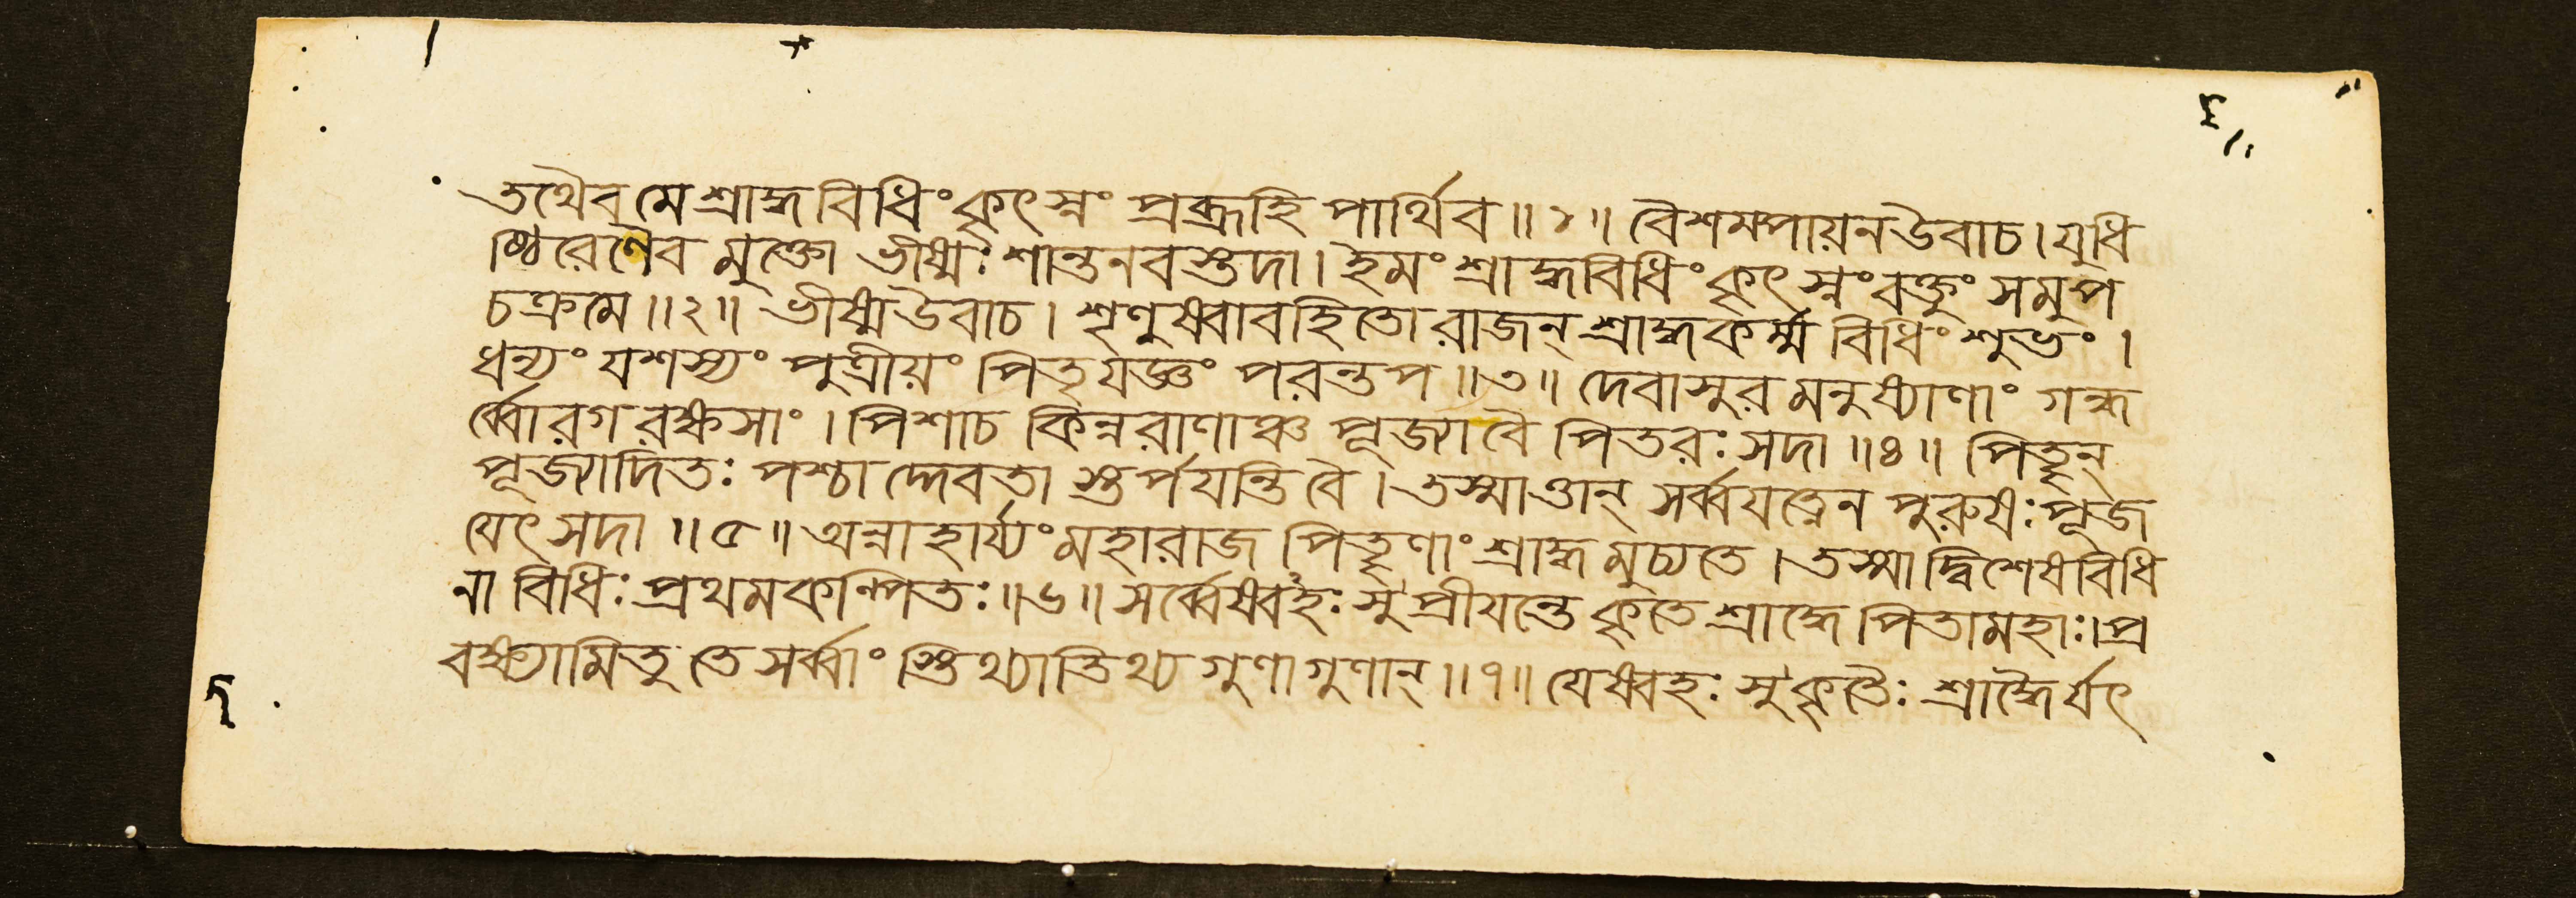 তথৈব মে শ্রাদ্ধবিধিং কৃৎস্নং প্রব্রূহি পার্থিব॥১॥ বৈশমপায়নউবাচ। যুধি
ষ্ঠিরেণৈব মুক্তো ভীষ্মঃ শান্তনবস্তদা। ইমং শ্রাদ্ধবিধিং কৃৎস্নং বক্তুং সমুপ
চক্রমে॥২॥ ভীষ্মউবাচ। শৃণুষ্বাবহিতো রাজন্ শ্রাদ্ধকর্ম্ম বিধিং শুভং।
ধন্যং যশস্যং পুত্রীয়ং পিতৃযজ্ঞং পরন্তপ॥৩॥ দেবাসুর মনুষ্যাণাং গন্ধ
র্ব্বোরগ রক্ষসাং। পিশাচ কিন্নরাণাঞ্চ পূজ্যা বৈ পিতরঃ সদা॥৪॥ পিতৄন্
পূজ্যাদিতঃ পশ্চা দ্দেবতা স্তর্পযন্তি বৈ। তস্মাত্তান্ সর্ব্বযত্নেন পুরুষঃ পূজ
যেৎ সদা॥৫॥ অন্নাহার্য্যং মহারাজ পিতৄণাং শ্রাদ্ধ মুচ্যতে। তস্মাদ্বিশেষবিধি
না বিধিঃ প্রথমকল্পিতঃ॥৬॥ সর্ব্বেষ্বহঃ সুপ্রীযন্তে কৃতে শ্রাদ্ধে পিতামহাঃ। প্র
বক্ষ্যামি তু তে সর্ব্বাং স্তিথ্যাতিথ্য গুণাগুণান্॥৭॥ যেষ্বহঃ সুকৃতৈঃ শ্রাদ্ধৈর্যৎ